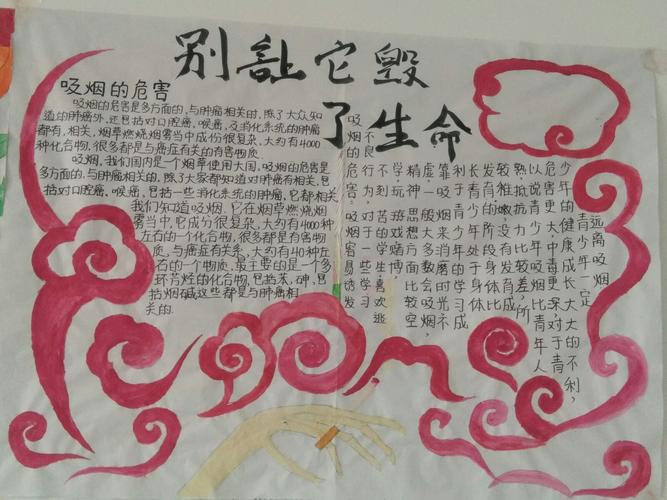 别让它毁
了生命
吸烟的危害
吸烟的危害是多方面的,与肿瘤相关的,除了大众知
道的肺癌外,还包括对口腔癌,喉癌,及消化系统的肿瘤
都有,相关,烟草燃烧烟雾当中成份很复杂,大约有4000
种化合物,很多都是与癌症有关的有害物质
吸烟,我们国内是一个烟草使用大国,吸烟的危害是
多方面的,与肿瘤相关的,除了大家都知道对肺癌有相关,包
括对口腔癌,喉癌,包括一些消化系统的肿瘤,它都相关
我们知道吸烟,它在烟草燃烧烟
雾当中,它成份很复杂,大约有4000种
左右的一个化合物,很多都是有害物
质,与癌症有关系,大约有40种左
右的一个物质,最主要的是一个多
环芳烃的化合物,包括苯,砷,包
括烟碱这些都是与肺癌相
关的.
远离吸烟
青少年一定
少年的健康成长大大的不利,
危害更大中毒更深对于青
以说青少年吸烟比青年人
熟,抵抗力比较差,所
较稚嫩,没有发育成
发育的阶段身体比
长青少年处于身体
利于青少年的学习成
靠吸烟来消磨时光不
虚,一般大多数会吸烟,
精神,思想方面比较空
学,玩,班戏赌博,
不到,苦的学生喜欢逃
行为,对于一些学习
危害,吸烟容易诱发
吸烟不的良